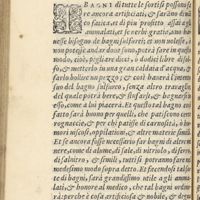 BAGNI di tutte le sorti si possono fa
re ancora artificiati, & saranno di mã
co fatica, et di piu profitto assai a gli
ammalati, et se verbi gratia, uno ha-
vesse bisogno di bagni sulfurei, & non volesse, o
non potesse andar dove sono, potrà fare in questo
modo, cioè, pigliare dieci, ò dodici libre di solfo,
& metterlo in una gran caldaia d'acqua, &
farlo bollire un pezzo; & così haverà l'istesso
uso del bagno sulfureo, senza altro travaglio
del quale potrà bere, & stufarsi, & bagnarsi
esso, come a lui piacerà. Et questo tal bagno
fatto sarà buono per quelli, che patiscono cer-
rognaccie, & per chi patisse di carnositi, &
mori viscosi, oppilationi, & altre materie simili.
Et se ancora fosse necessario far bagni di altre
nere, come di alume, di sale, di nitriolo, di ferro
di salnitro, & simili, tutti si potranno fare in
medesimo modo sopra detto. Et facendosi tal
te di bagni, sarà grandissimo utile a gli amma
lati, & honore al medico, che tal bagni ordi
rà: perche è cosa artificiata & nobile, & deg